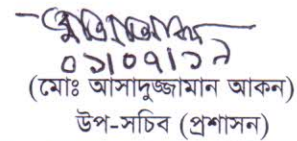 ০১।০৭।১৯
(মোঃ আসাদুজ্জামান আকন)
উপ-সচিব (প্রশাসন)